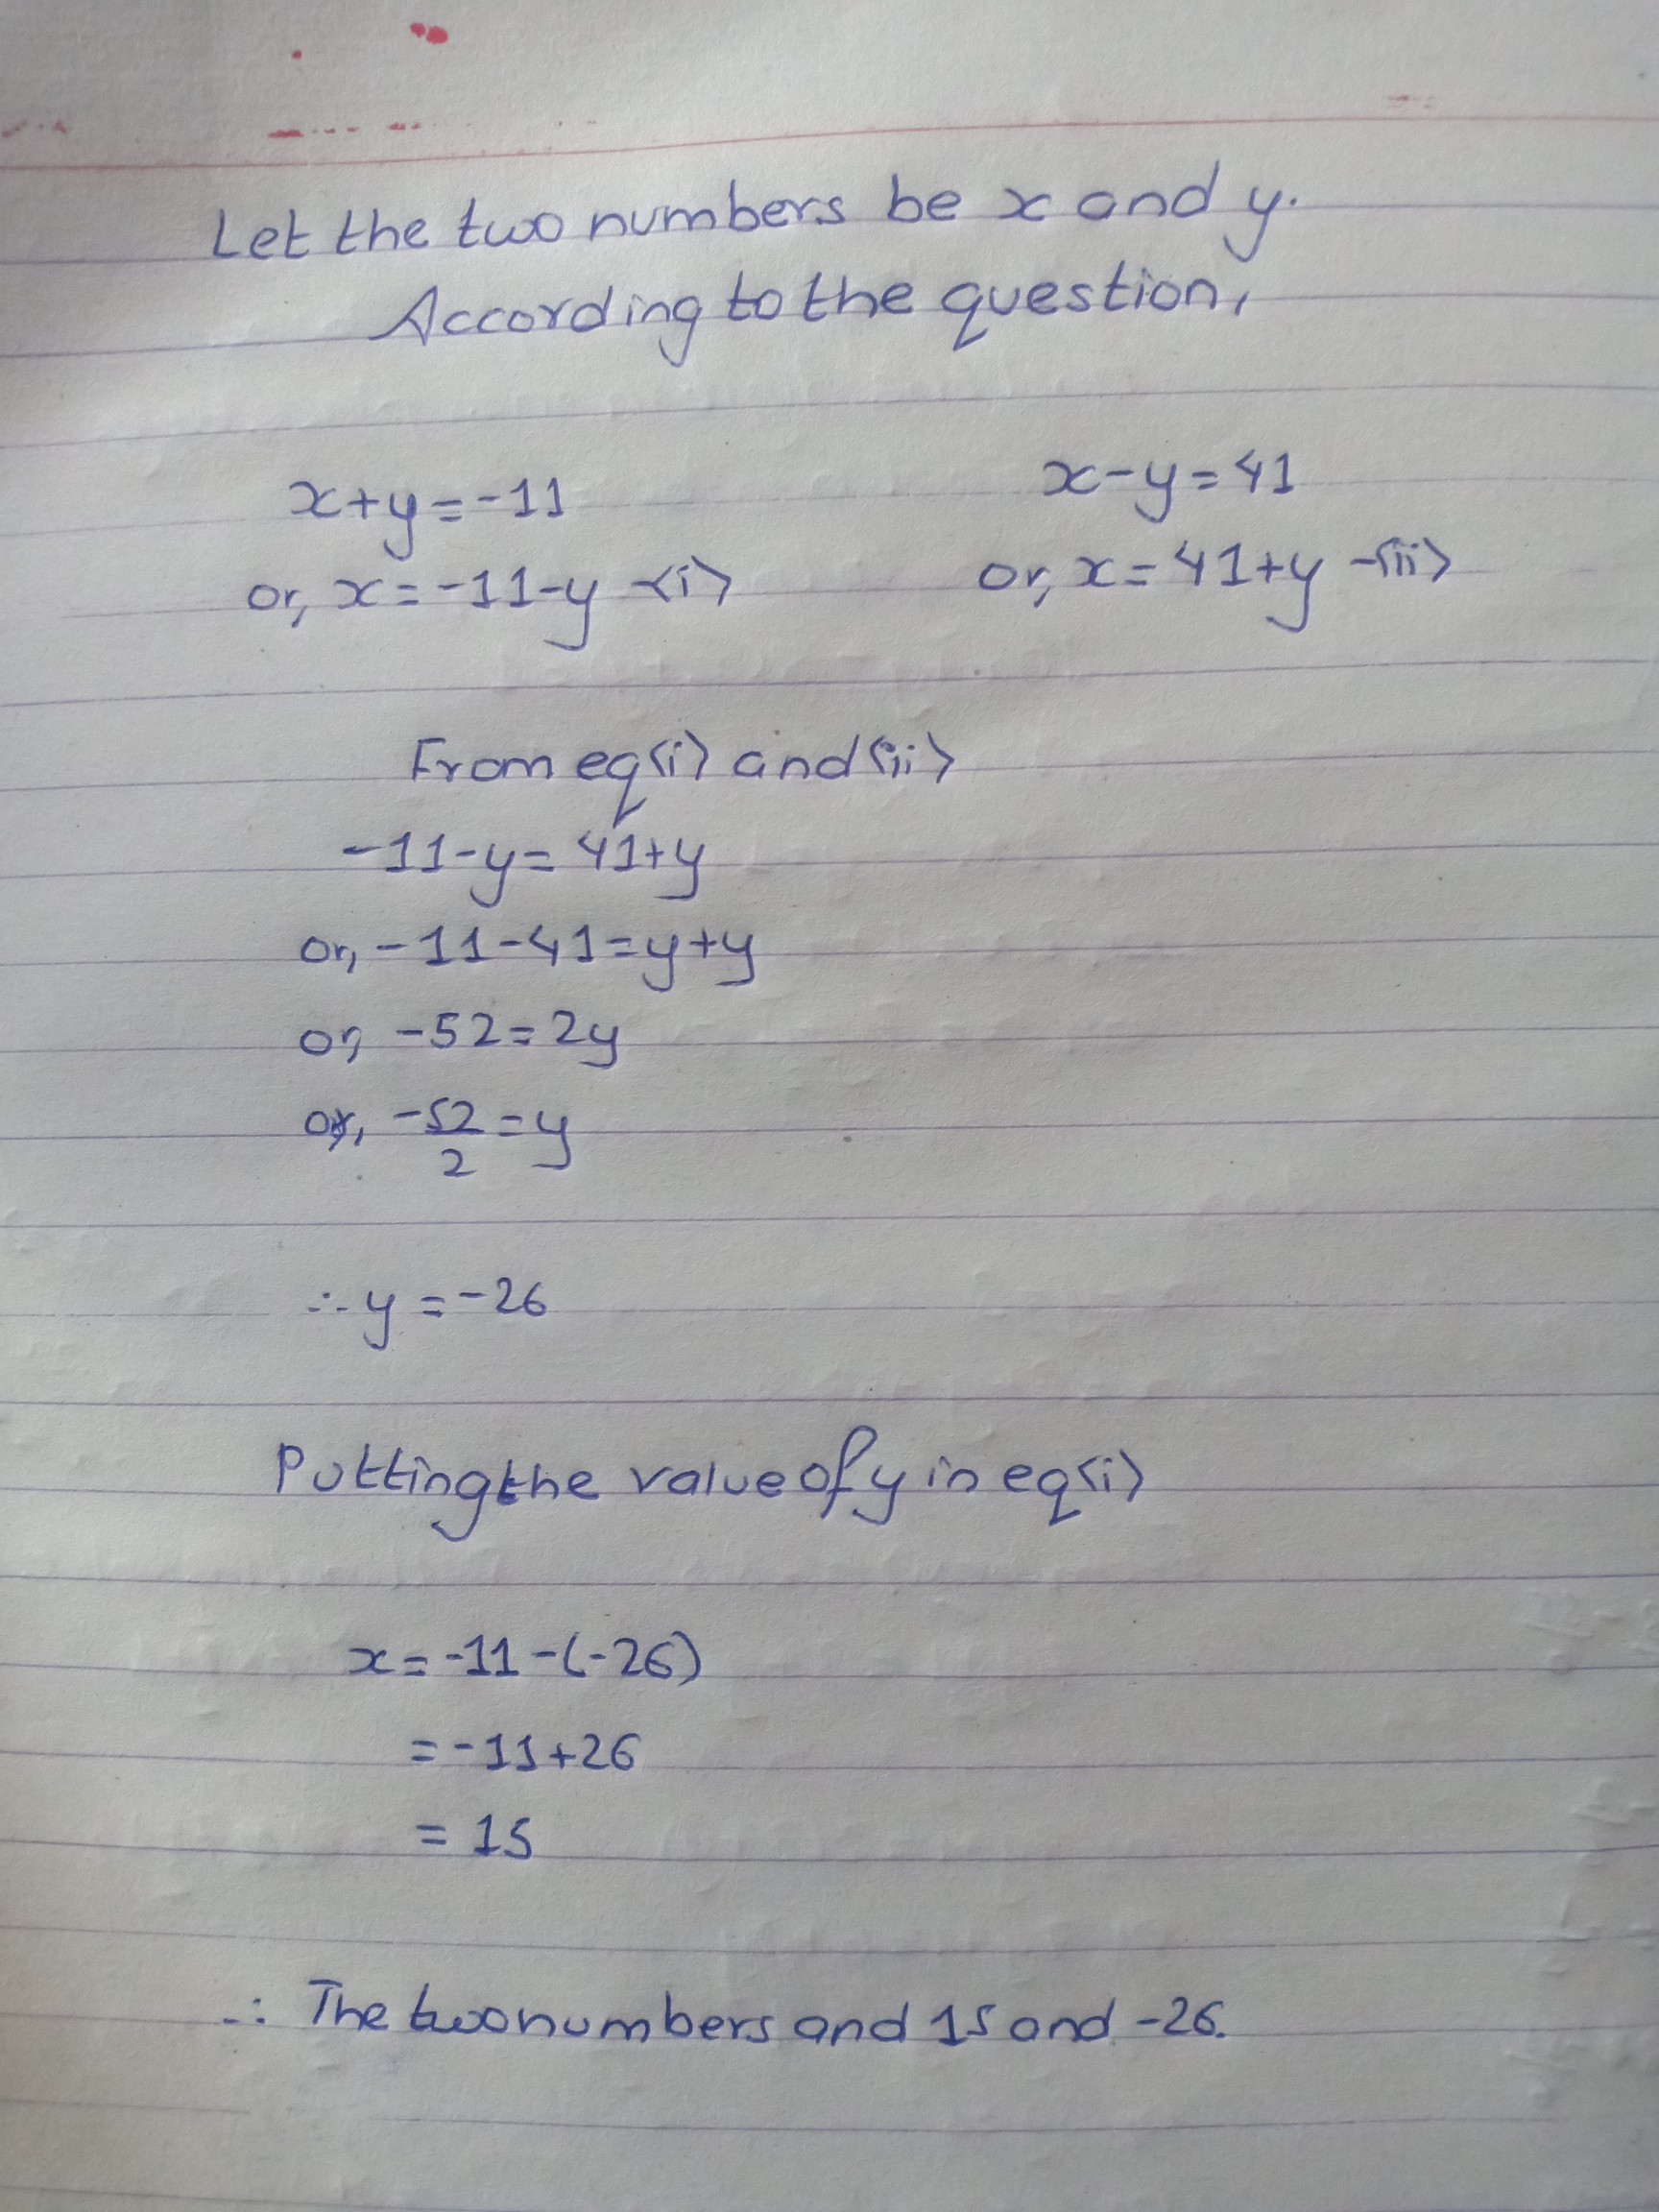 Let the two numbers be x and y.
According to the question,
x+y=-11
or, x=-11-y -<i>
x-y=41
or, x=41+y -<ii>
From eq<i> and <ii>
-11-y=41+y
or, -11-41=y+y
or, -52=2y
or, -52/2=y
∴ y=-26
Putting the value of y in eq<i>
x=-11-(-26)
=-11+26
=15
∴ The two numbers and 15 and -26.